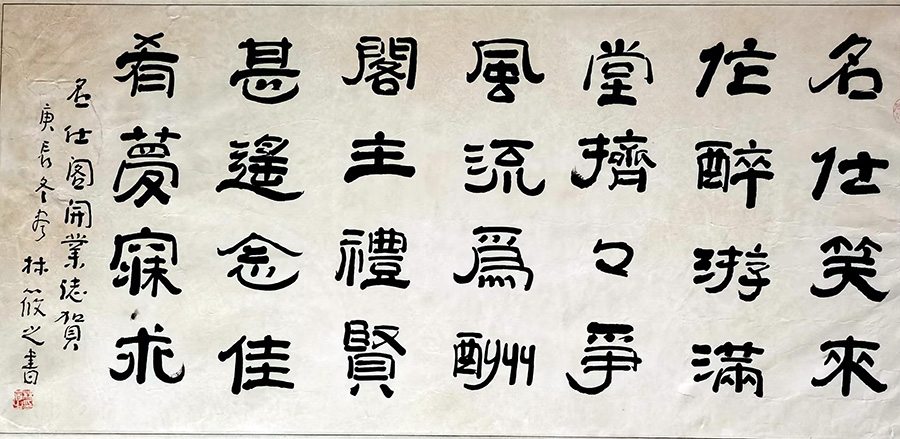 名仕笑來
作醉游滿
堂擠々爭
風流爲酬
閣主禮賢
甚遙念佳
肴夢寐求
名仕阁開業誌賀
庚辰冬 林筱之書